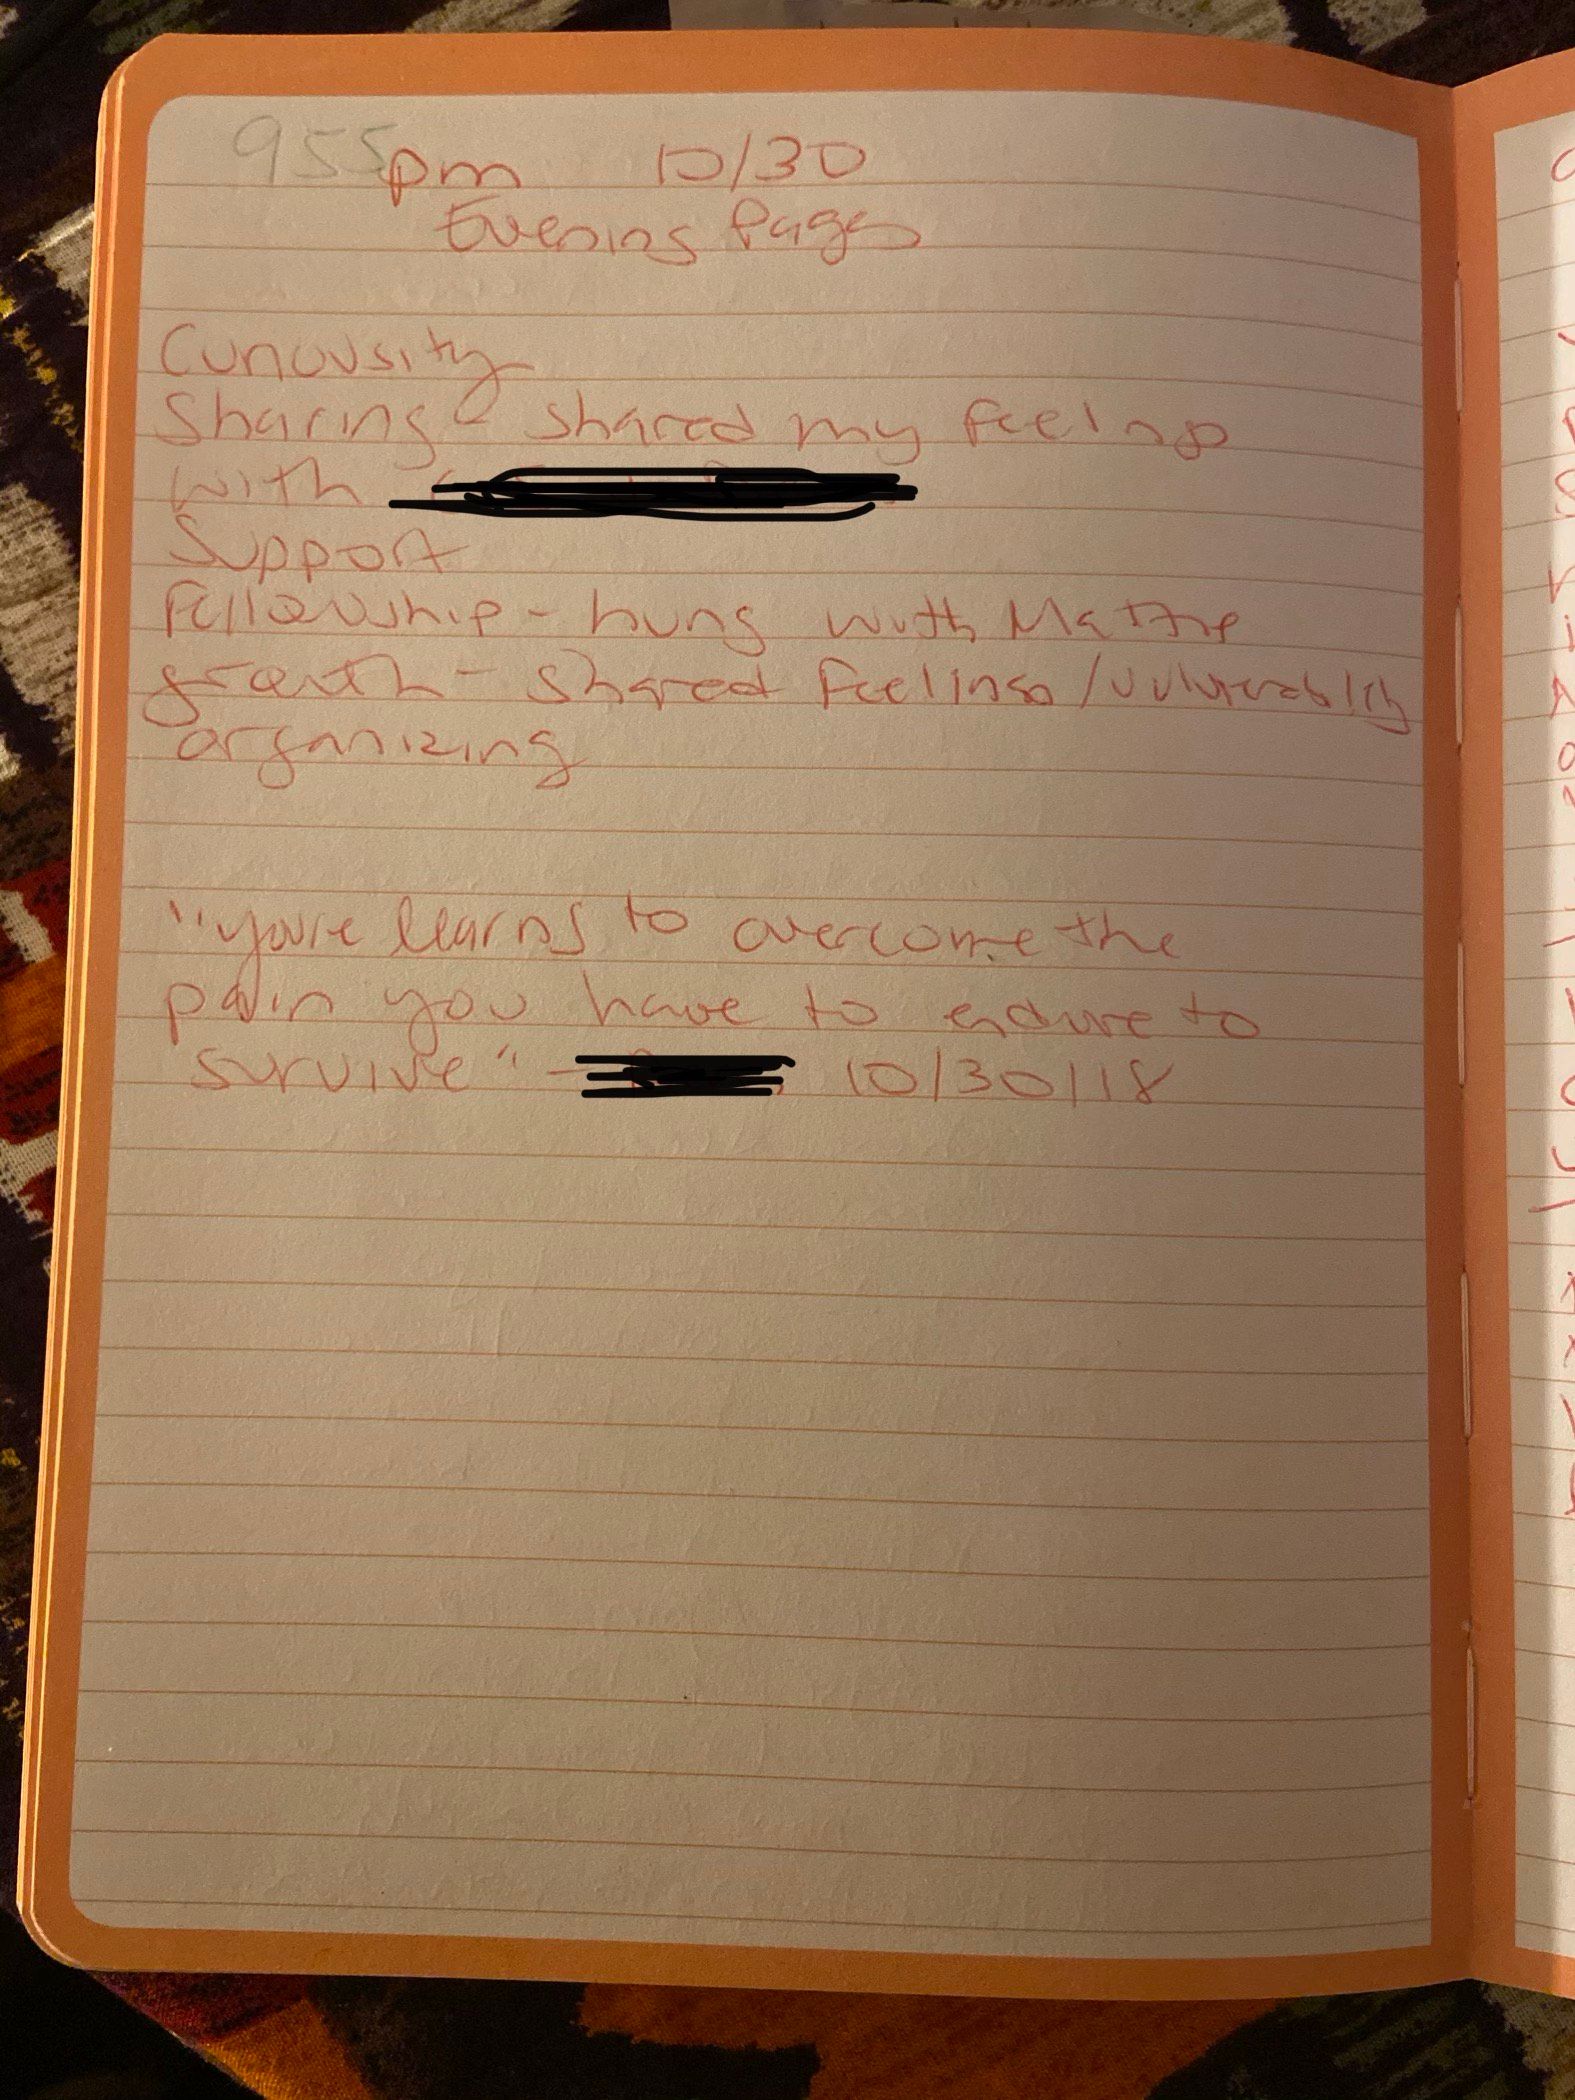 955pm 10/30
Evening Pages
Curiousity
Sharing - shared my feelings
with
Support
Fellowship - hung with Mattie
growth - shared feelings/vulnerability
organizing
"you're learng to overcome the
pain you have to endure to
survive" - 10/30/18